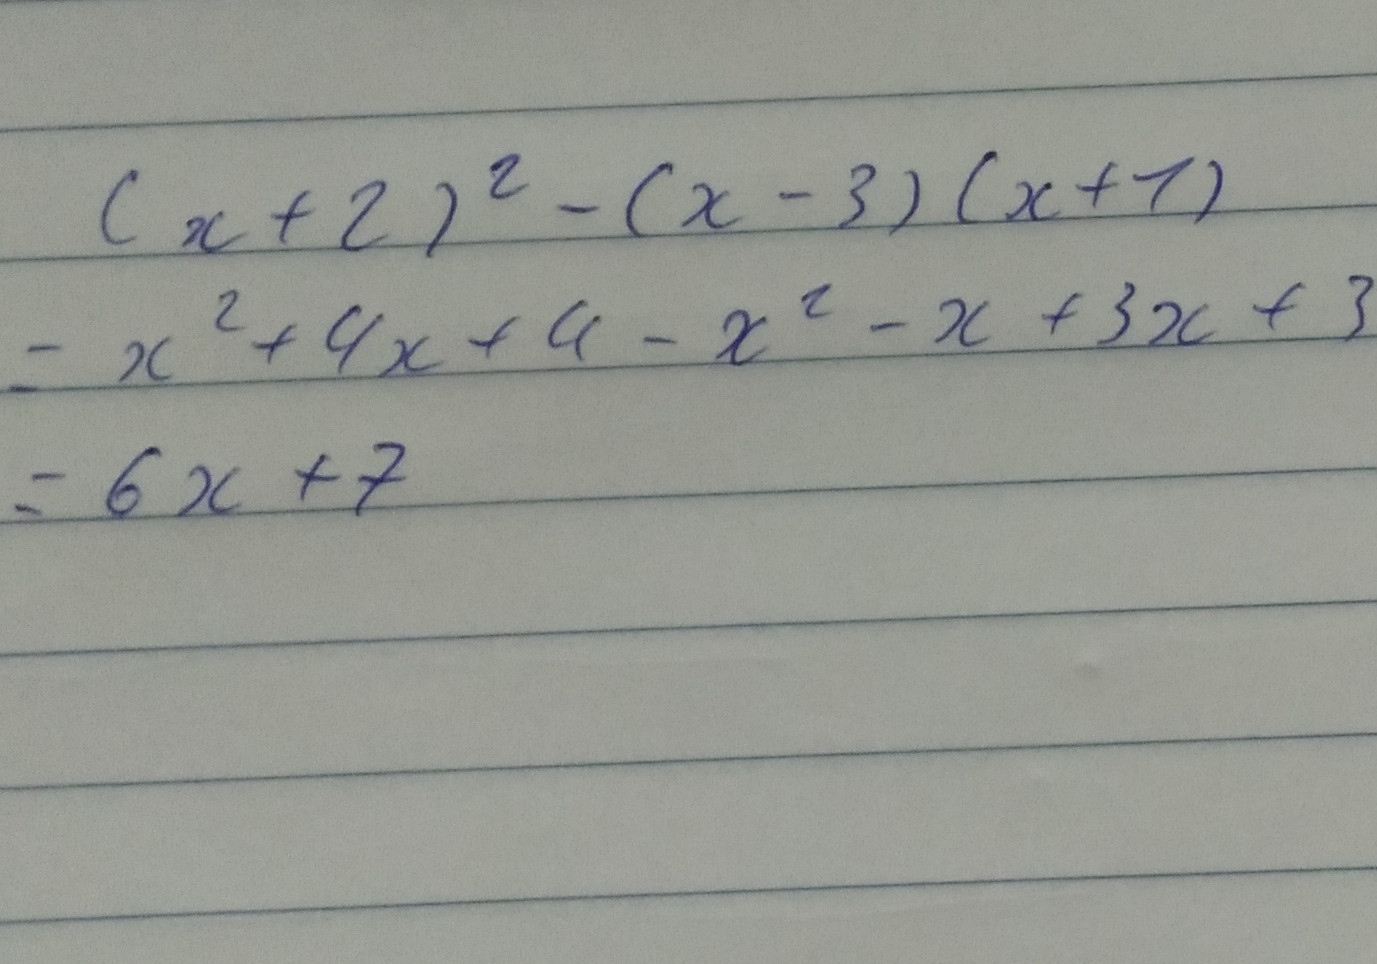 (x+2)² - (x-3)(x+1)
= x² + 4x + 4 - x² - x + 3x + 3
= 6x + 7